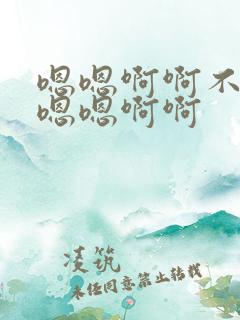 嗯嗯啊啊不
嗯嗯啊啊
凌筑
未经同意禁止转载